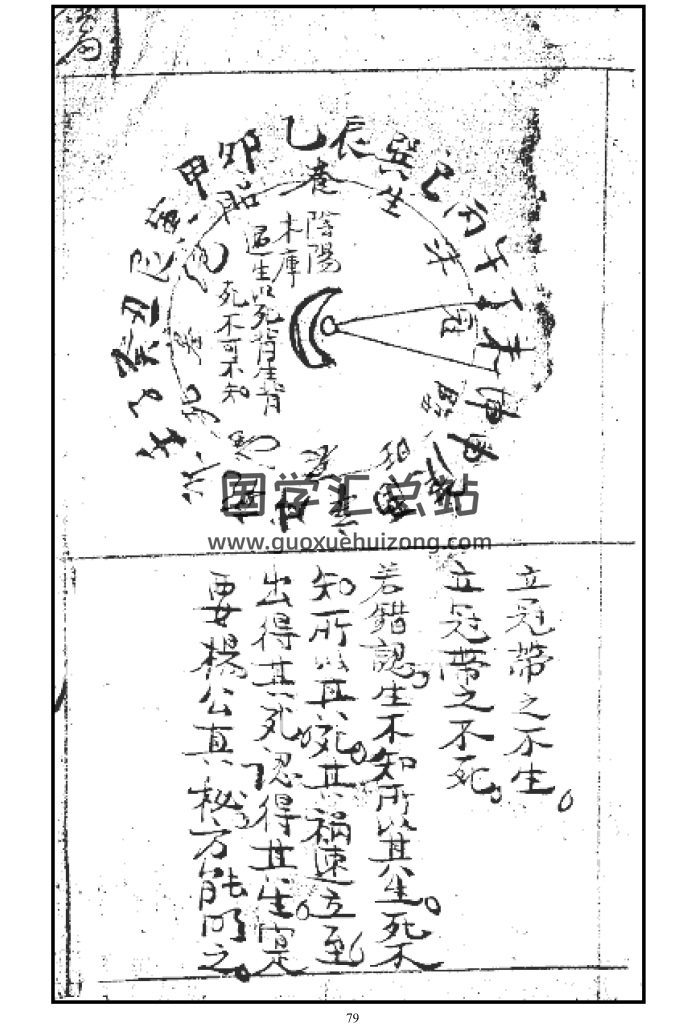 甲卯乙辰巽巳丙午丁未坤申
胎
養
生
沐
冠
臨
旺
陰陽
木庫
逆生以死背生背
死不可不知
艮
丑
癸
子
国学汇总站
www.guoxuehuizong.com
立冠帶之不生。
立冠帶之不死。
若錯認。生不知所以其生。死不
知所以其死。其禍速立至
出得其死。認得其生。寔是
要楊公真秘。方能明之。
79